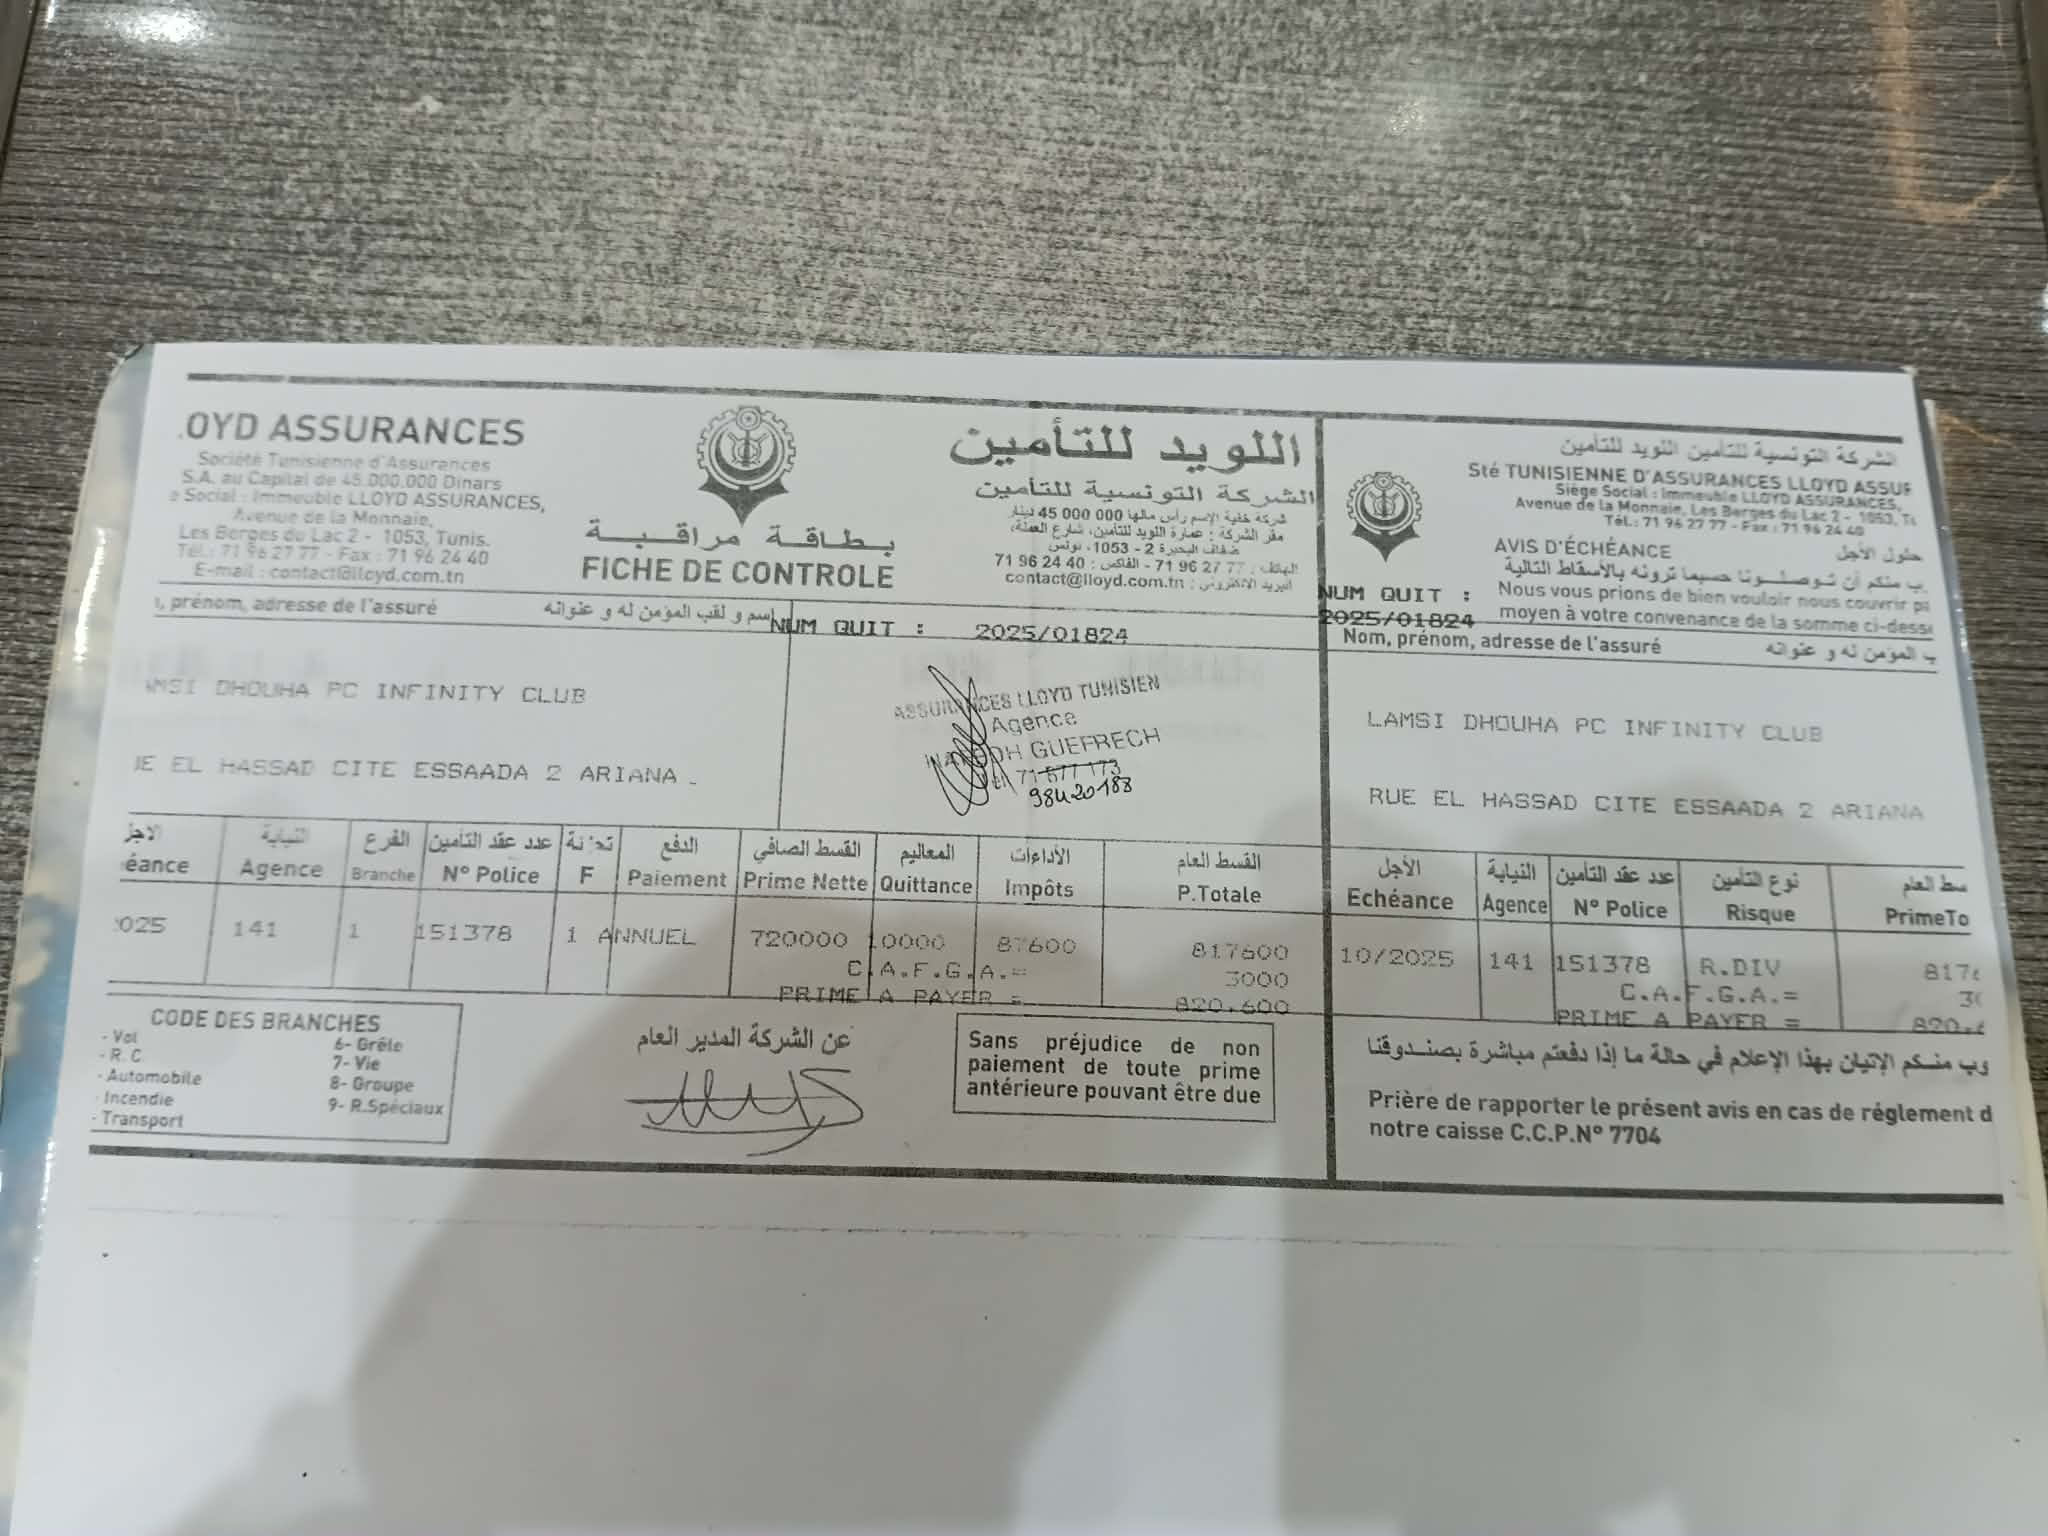 OYD ASSURANCES
Société Tunisienne d'Assurances
S.A. au Capital de 45.000.000 Dinars
e Social : Immeuble LLOYD ASSURANCES,
Avenue de la Monnaie,
Les Berges du Lac 2 - 1053, Tunis.
Tél.: 71 96 27 77 - Fax : 71 96 24 40
E-mail : contact@lloyd.com.tn
بطاقة مراقبة
FICHE DE CONTROLE
اللويد للتأمين
الشركة التونسية للتأمين
شركة خفية الإسم رأس مالها 000 000 45 دينار
مقر الشركة : عمارة اللويد للتأمين، شارع العملة،
ضفاف البحيرة 2 - 1053، تونس
الهاتف : 77 27 96 71 - الفاكس : 40 24 96 71
البريد الالكتروني : contact@lloyd.com.tn
, prénom, adresse de l'assuré
إسم و لقب المؤمن له و عنوانه
NUM QUIT : 2025/01824
AMSI DHOUHA PC INFINITY CLUB
UE EL HASSAD CITE ESSAADA 2 ARIANA
ASSURANCES LLOYD TUNISIEN
Agence
GUEFRECH
Tel 71 677 173
98420188
النيابة الفرع عدد عقد التأمين الدفع القسط الصافي المعاليم الأداءات القسط العام
éance Agence Branche N° Police F Paiement Prime Nette Quittance Impôts P.Totale
2025 141 1 151378 1 ANNUEL 720000 10000 87600 817600
C.A.F.G.A.= 3000
PRIME A PAYER = 820.600
CODE DES BRANCHES
- Vol 6- Grêle
- R.C. 7- Vie
- Automobile 8- Groupe
- Incendie 9- R.Spéciaux
- Transport
عن الشركة المدير العام
Sans préjudice de non
paiement de toute prime
antérieure pouvant être due
الشركة التونسية للتأمين اللويد للتأمين
Sté TUNISIENNE D'ASSURANCES LLOYD ASSUR
Siège Social : Immeuble LLOYD ASSURANCES,
Avenue de la Monnaie, Les Berges du Lac 2 - 1053, Tu
Tél.: 71 96 27 77 - Fax : 71 96 24 40
AVIS D'ÉCHÉANCE
حلول الأجل
NUM QUIT :
2025/01824
Nous vous prions de bien vouloir nous couvrir pa
moyen à votre convenance de la somme ci-dess
Nom, prénom, adresse de l'assuré
المؤمن له و عنوانه
LAMSI DHOUHA PC INFINITY CLUB
RUE EL HASSAD CITE ESSAADA 2 ARIANA
الأجل النيابة عدد عقد التأمين نوع التأمين سط العام
Echéance Agence N° Police Risque PrimeTo
10/2025 141 151378 R.DIV 817
C.A.F.G.A.=
PRIME A PAYER = 820.
وب منكم الإتيان بهذا الإعلام في حالة ما إذا دفعتم مباشرة بصندوقنا
Prière de rapporter le présent avis en cas de réglement d
notre caisse C.C.P.N° 7704